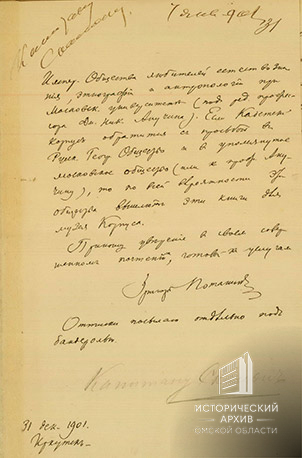 7 янв. 901
Импер. Общества любителей естествозна-
ния, этнографии и антропологии при
Московск. университете (под ред. профес-
сора Дм. Ник. Анучина). Если Кадетск.
корпус обратится с просьбой в
Русск. Геогр. Общество и в упомянутое
московское общество (или к проф. Ану-
чину), то по всей вероятности эти
общества вышлют эти книги для
музея Корпуса.
Приношу уверение в своем совер-
шенном почтении, готовый к услугам
Григорий Потанин
Оттиски посылаю отдельно под
бандеролью.
Капитану
31 дек. 1901.
Иркутск.
ИСТОРИЧЕСКИЙ
АРХИВ
ОМСКОЙ ОБЛАСТИ